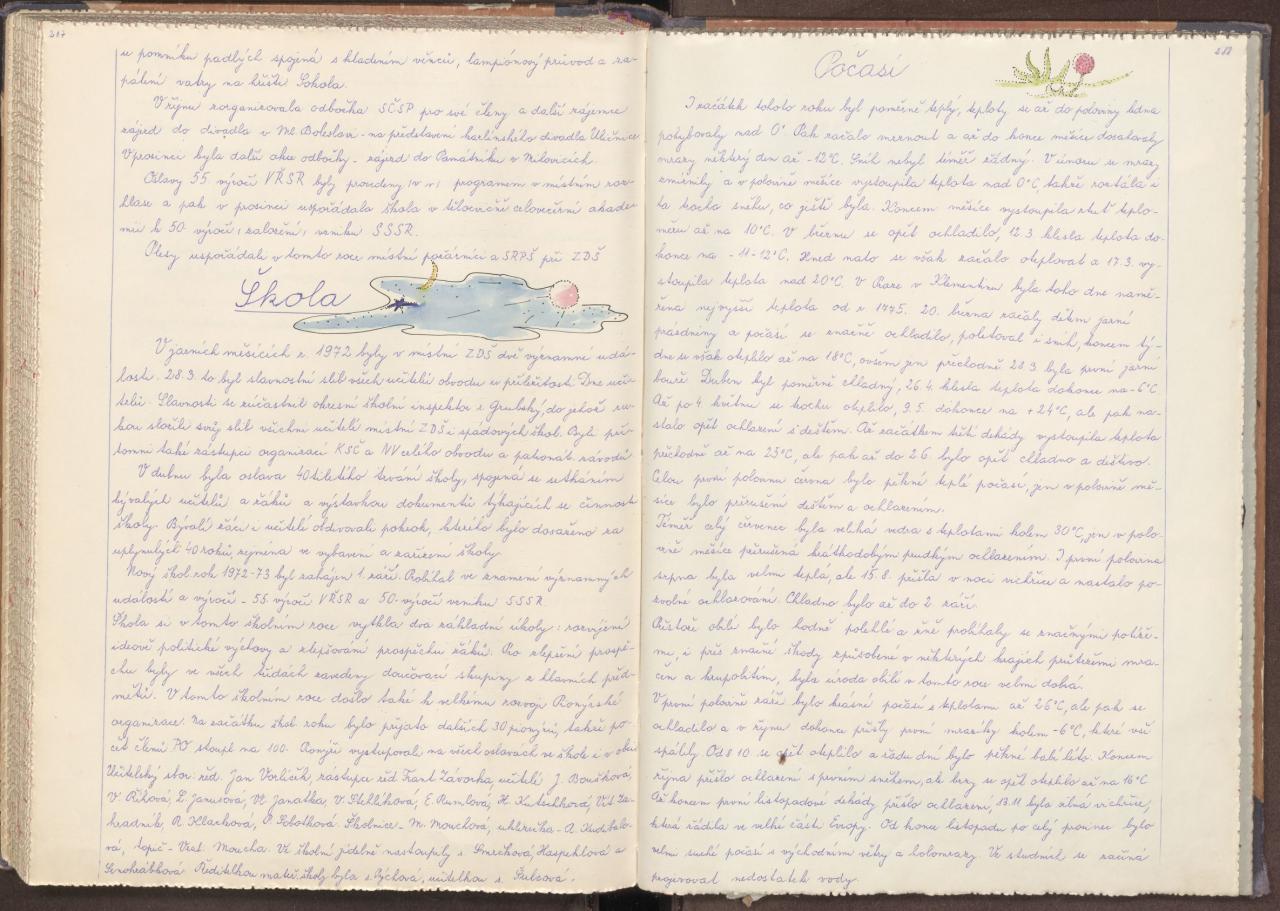 317
u pomníku padlých spojená s kladením věnců, lampionový průvod a za-
pálení vatry na hřišti Sokola.
V říjnu zorganizovala odbočka SČSP pro své členy a další zájemce
zájezd do divadla v Ml. Boleslavi - na představení karlínského divadla Uličnice
V prosinci byla další akce odbočky - zájezd do Památníku v Milovicích.
Oslavy 55. výročí VŘSR byly provedeny programem v místním roz-
hlase a pak v prosinci uspořádala škola v tělocvičně celovečerní akade-
mii k 50. výročí založení, vzniku SSSR.
Plesy uspořádali v tomto roce místní požárníci a SRPŠ při ZDŠ
Škola
V jarních měsících r. 1972 byly v místní ZDŠ dvě významné udá-
losti. 28.3. to byl slavnostní slib všech učitelů obvodu u příležitosti Dne uči-
telů. Slavnosti se zúčastnil okresní školní inspektor s. Grubský, do jehož ru-
kou složili svůj slib všichni učitelé místní ZDŠ i spádových škol. Byli pří-
tomni také zástupci organizací KSČ a NV celého obvodu a patronát. závodů
V dubnu byla oslava 40tiletého trvání školy, spojená se setkáním
bývalých učitelů a žáků a výstavkou dokumentů týkajících se činnosti
školy. Bývalí žáci i učitelé obdivovali pokrok, kterého bylo dosaženo za
uplynulých 40 roků, zejména ve vybavení a zařízení školy.
Nový škol. rok 1972-73 byl zahájen 1. září. Probíhal ve znamení významných
událostí a výročí - 55. výročí VŘSR a 50. výročí vzniku SSSR.
Škola si v tomto školním roce vytkla dva základní úkoly: rozvíjení
ideově politické výchovy a zlepšování prospěchu žáků. Pro zlepšení prospě-
chu byly ve všech třídách zavedeny doučovací skupiny z hlavních před-
mětů. V tomto školním roce došlo také k velkému rozvoji Pionýrské
organizace. Na začátku škol. roku bylo přijato dalších 30 pionýrů, takže po-
čet členů PO stoupl na 100. Pionýři vystupovali na všech oslavách ve škole i v obci
Učitelský sbor: řed. Jan Vorlíček, zástupce řed. Frant. Závorka, učitelé J. Boušková,
V. Říhová, L. Janusová, Vl. Janatka, V. Stehlíková, E. Rumlová, H. Kutschková, Vít Za-
hradník, R. Hlachová, P. Sobotková. Školnice - M. Mouchová, uklízečka - A. Kudibalo-
vá, topič - Vrat. Moucha. Ve školní jídelně nastoupily s. Smrčková, Haspeklová a
Senohrábková. Ředitelkou mateř. školy byla s. Pýchová, učitelkou s. Šulcová.
318
Počasí
I začátek tohoto roku byl poměrně teplý, teploty se až do poloviny ledna
pohybovaly nad 0°. Pak začalo mrznout a až do konce měsíce dosahovaly
mrazy některý den až -12°C. Sníh nebyl téměř žádný. V únoru se mrazy
zmírnily a v polovině měsíce vystoupila teplota nad 0°C takže roztála i
ta trocha sněhu, co ještě byla. Koncem měsíce vystoupila rtuť teplo-
měru až na 10°C. V březnu se opět ochladilo, 12.3. klesla teplota do-
konce na -11-12°C. Hned nato se však začalo oteplovat a 17.3. vy-
stoupila teplota nad 20°C. V Praze v Klementinu byla toho dne namě-
řena nejvyšší teplota od r. 1775. 20. března začaly dětem jarní
prázdniny a počasí se značně ochladilo, poletoval i sníh, koncem tý-
dne se však oteplilo až na 18°C, ovšem jen přechodně. 28.3. byla první jarní
bouře. Duben byl poměrně chladný, 26.4. klesla teplota dokonce na -6°C
Až po 4. květnu se trochu oteplilo, 9.5. dokonce na +24°C, ale pak na-
stalo opět ochlazení s deštěm. Až začátkem třetí dekády vystoupila teplota
přechodně až na 25°C, ale pak až do 2.6. bylo opět chladno a deštivo.
Celou první polovinu června bylo pěkné teplé počasí, jen v polovině mě-
síce bylo přerušeno deštěm a ochlazením.
Téměř celý červenec byla veliká vedra s teplotami kolem 30°C, jen v polo-
vině měsíce přerušená krátkodobým prudkým ochlazením. I první polovina
srpna byla velmi teplá, ale 15.8. přišla v noci vichřice a nastalo po-
zvolné ochlazování. Chladno bylo až do 2. září.
Přestože obilí bylo hodně polehlé a žně probíhaly se značnými potíže-
mi, i přes značné škody způsobené v některých krajích průtržemi mra-
čen a krupobitím, byla úroda obilí v tomto roce velmi dobrá.
V první polovině září bylo krásné počasí s teplotami až 26°C, ale pak se
ochladilo a v říjnu dokonce přišly první mrazíky kolem -6°C, které vše
spálily. Od 8.10. se opět oteplilo a řadu dní bylo pěkné babí léto. Koncem
října přišlo ochlazení s prvním sněhem, ale brzy se opět oteplilo až na 16°C
Až koncem první listopadové dekády přišlo ochlazení, 13.11. byla silná vichřice,
která řádila ve velké části Evropy. Od konce listopadu po celý prosinec bylo
velmi suché počasí s východními větry a holomrazy. Ve studních se začíná
projevovat nedostatek vody.